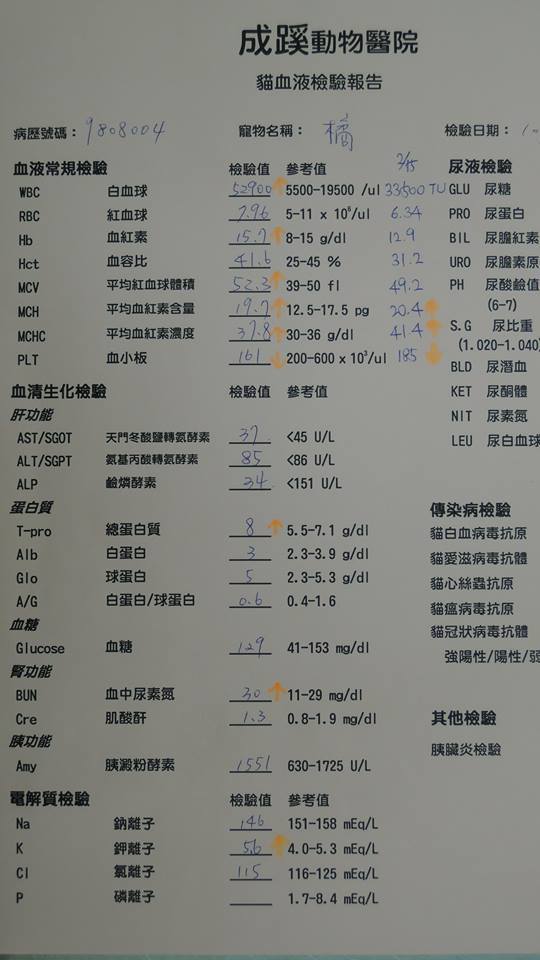 成蹊動物醫院
貓血液檢驗報告
病歷號碼： 9808004 寵物名稱： 橘 檢驗日期：
血液常規檢驗 檢驗值 參考值 2/15 尿液檢驗
WBC 白血球 52900 ↑ 5500-19500 /ul 33500 TU GLU 尿糖
RBC 紅血球 7.96 5-11 x 10⁶/ul 6.34 PRO 尿蛋白
Hb 血紅素 15.7 ↑ 8-15 g/dl 12.9 BIL 尿膽紅素
Hct 血容比 41.6 25-45 % 31.2 URO 尿膽素原
MCV 平均紅血球體積 52.3 ↑ 39-50 fl 49.2 PH 尿酸鹼值
(6-7)
MCH 平均血紅素含量 19.7 ↑ 12.5-17.5 pg 20.4 ↑
MCHC 平均血紅素濃度 37.8 ↑ 30-36 g/dl 41.4 ↑ S.G 尿比重
(1.020-1.040)
PLT 血小板 161 ↓ 200-600 x 10³/ul 185 ↓
BLD 尿潛血
血清生化檢驗 檢驗值 參考值 KET 尿酮體
肝功能 NIT 尿素氮
AST/SGOT 天門冬酸鹽轉氨酵素 37 <45 U/L LEU 尿白血球
ALT/SGPT 氨基丙酸轉氨酵素 85 <86 U/L
ALP 鹼燐酵素 34 <151 U/L
蛋白質 傳染病檢驗
T-pro 總蛋白質 8 ↑ 5.5-7.1 g/dl 貓白血病毒抗原
Alb 白蛋白 3 2.3-3.9 g/dl 貓愛滋病毒抗體
Glo 球蛋白 5 2.3-5.3 g/dl 貓心絲蟲抗原
A/G 白蛋白/球蛋白 0.6 0.4-1.6 貓瘟病毒抗原
血糖 貓冠狀病毒抗體
Glucose 血糖 129 41-153 mg/dl 強陽性/陽性/弱
腎功能
BUN 血中尿素氮 30 ↑ 11-29 mg/dl
Cre 肌酸酐 1.3 0.8-1.9 mg/dl 其他檢驗
胰功能 胰臟炎檢驗
Amy 胰澱粉酵素 1551 630-1725 U/L
電解質檢驗 檢驗值 參考值
Na 鈉離子 146 151-158 mEq/L
K 鉀離子 5.6 ↑ 4.0-5.3 mEq/L
Cl 氯離子 115 116-125 mEq/L
P 磷離子 1.7-8.4 mEq/L